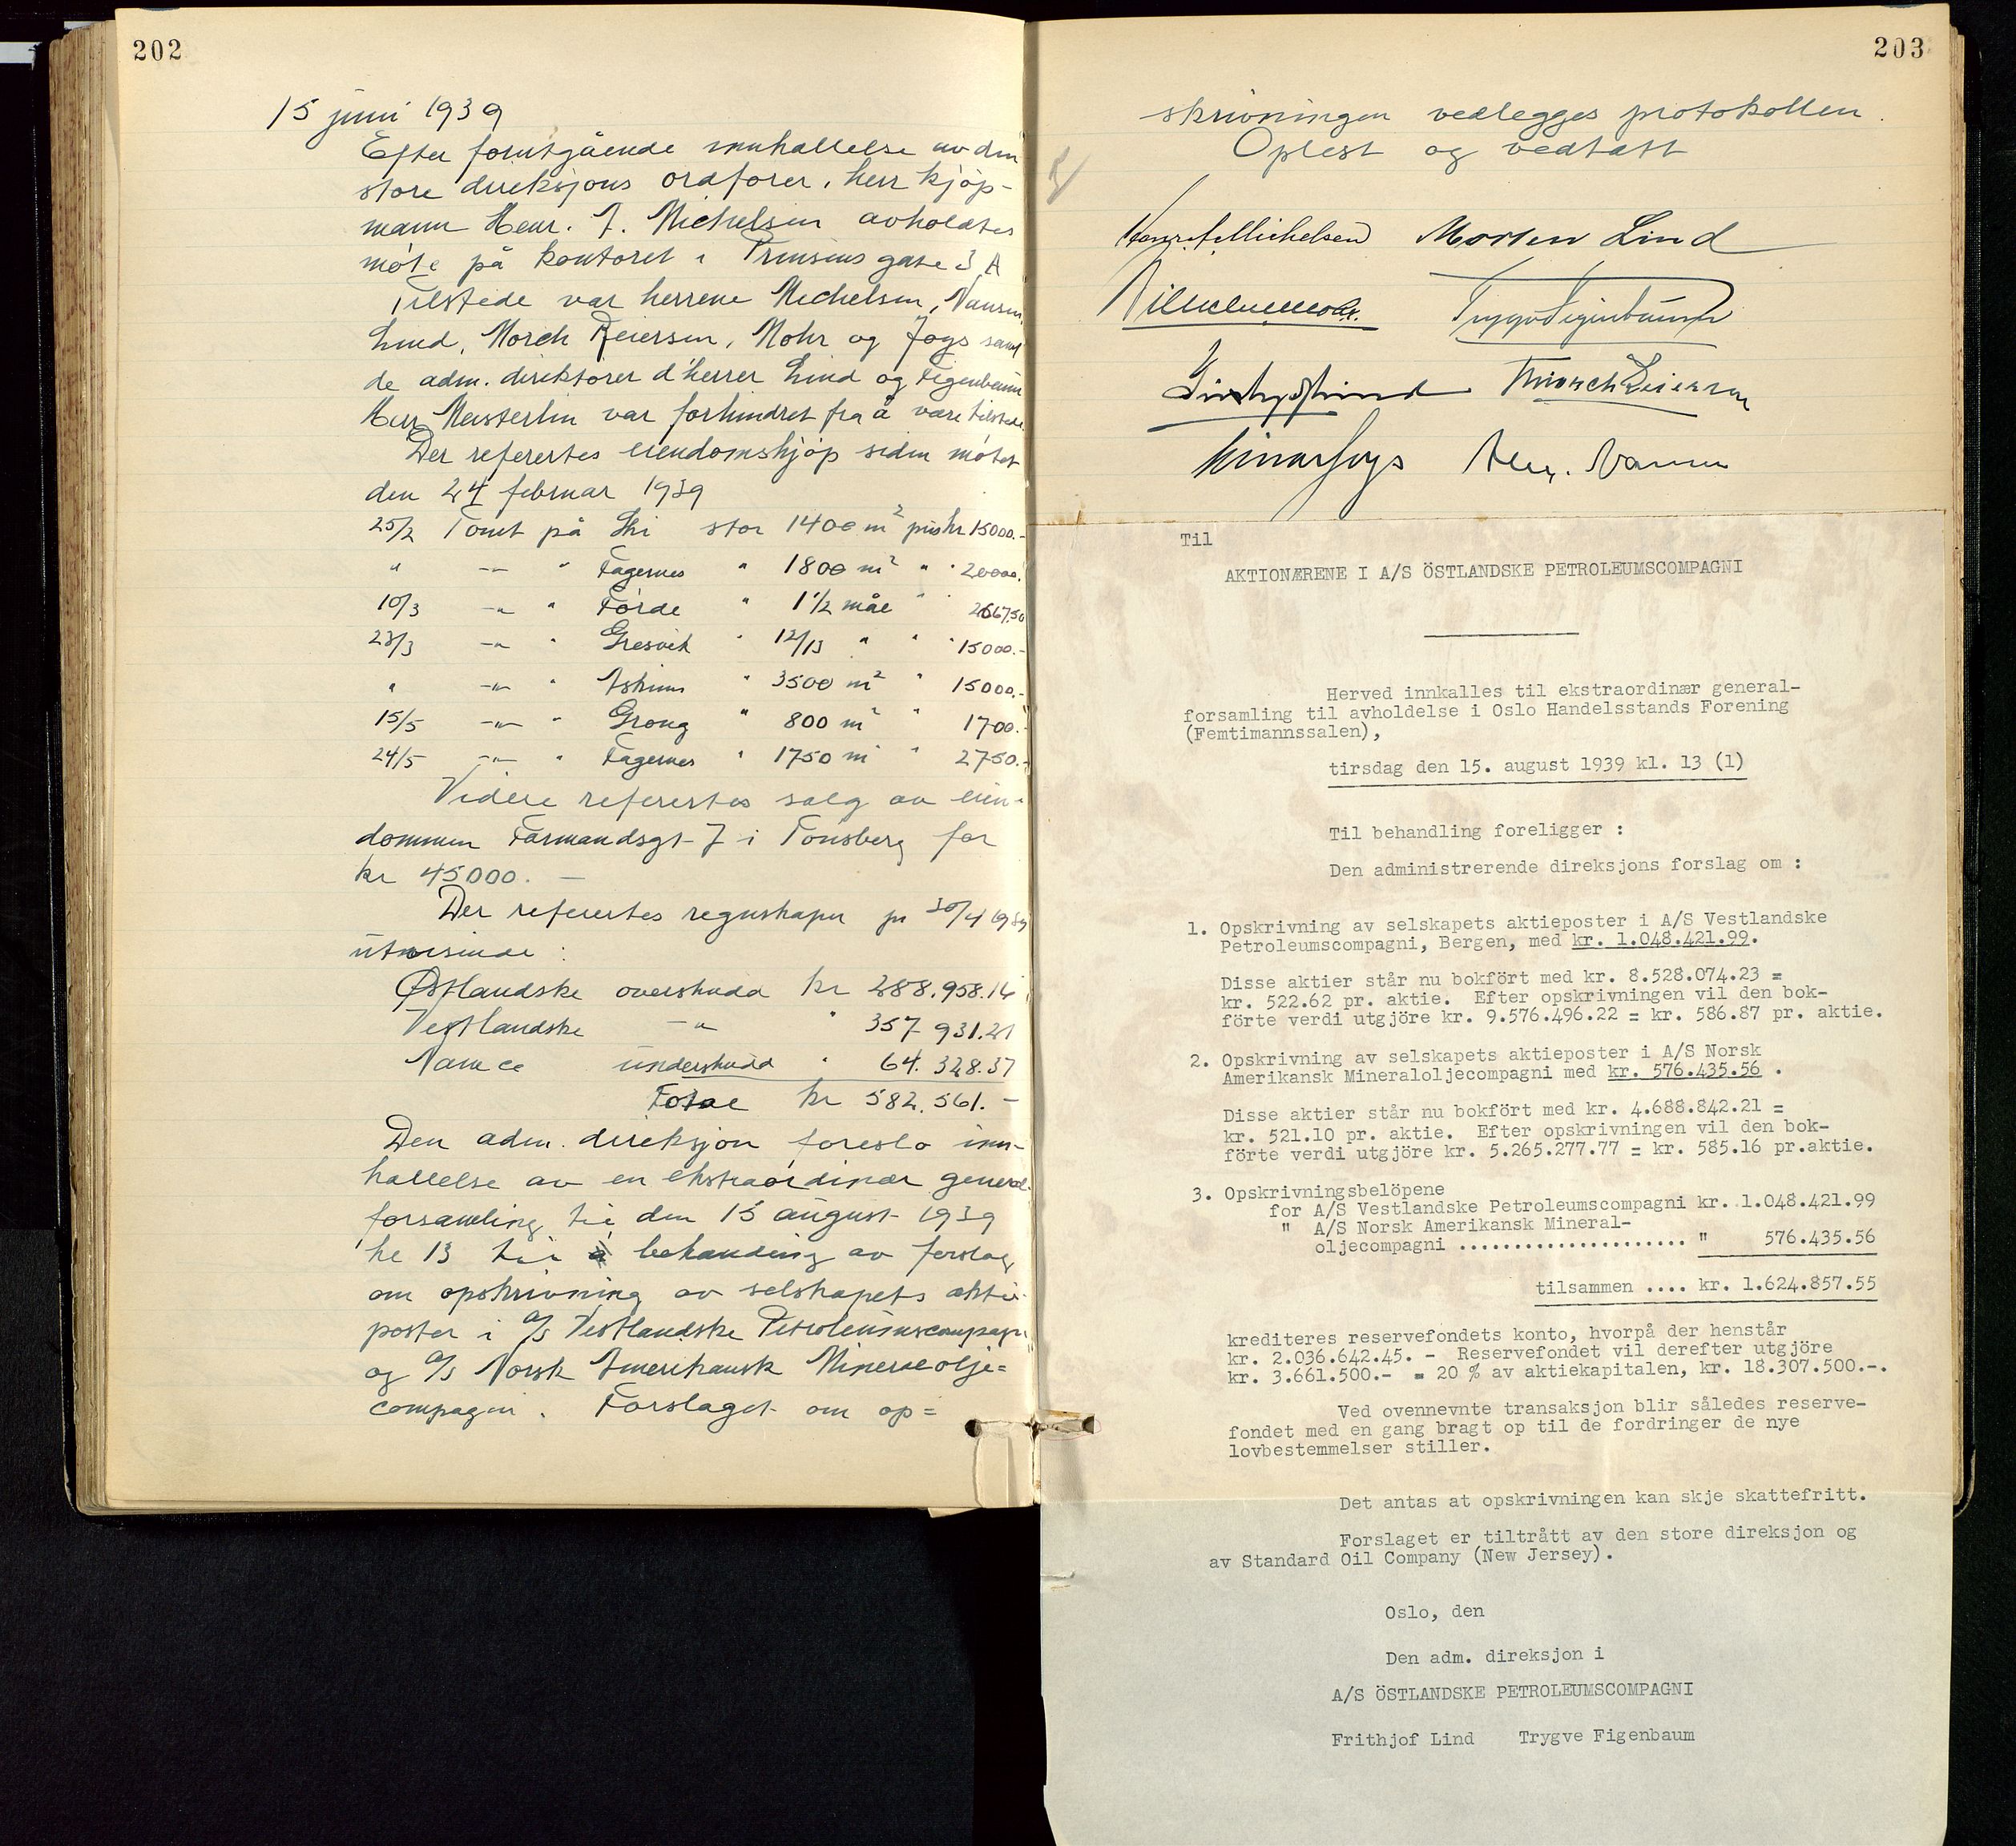 202
15 juni 1939
Efter forutgående innkallelse av den
store direksjons ordfører, herr kjøp-
mann Henr. J. Michelsen avholdtes
møte på kontoret i Prinsens gate 3 A
Tilstede var herrene Michelsen, Nansen,
Lind, Morch Reiersen, Mohr og Joys samt
de adm. direktører d'herrer Lind og Figenbaum
Herr Mesterlin var forhindret fra å være tilstede.
Der referertes eiendomskjøp siden møtet
den 24 februar 1939
25/2 Tomt på Ski stor 1400 m² pris kr 15000.-
" -"- " Fagernes " 1800 m² " " 20000.-
10/3 -"- " Førde " 1 1/2 mål " 2667.50
23/3 -"- " Gresvik " 12/13 " " " 15000.-
" -"- " Askim " 3500 m² " 15000.-
15/5 -"- " Grong " 800 m² " 1700.-
24/5 -"- " Fagernes " 1750 m² " 2750.-
Videre refertes salg av eien-
dommen Farmandsgt 7 i Tønsberg for
kr 45000. -
Der refertes regnskaper pr 30/4 1939
utvisende :
Østlandske overskudd kr 288.958.16
Vestlandske -"- " 357 931.21
Namco underskudd " 64. 328.37
Total kr 582.561. -
Den adm. direksjon foreslo inn-
kallelse av en ekstraordinær general-
forsamling til den 15 august 1939
kl 13 til behandling av forslag
om opskrivning av selskapets aktie-
poster i A/S Vestlandske Petroleumscompagni
og A/S Norsk Amerikansk Mineralolje=
compagni. Forslaget om op=
203
skrivningen vedlegges protokollen.
Oplest og vedtatt
Henr. J. Michelsen Morten Lind
Vilhelm Mohr. Trygve Figenbaum
Frithjof Lind Th Morch Reiersen
Einar Joys Alex. Nansen
Til
AKTIONÆRENE I A/S ÖSTLANDSKE PETROLEUMSCOMPAGNI
Herved innkalles til ekstraordinær general-
forsamling til avholdelse i Oslo Handelsstands Forening
(Femtimannssalen),
tirsdag den 15. august 1939 kl. 13 (1)
Til behandling foreligger :
Den administrerende direksjons forslag om :
1. Opskrivning av selskapets aktieposter i A/S Vestlandske
Petroleumscompagni, Bergen, med kr. 1.048.421.99.
Disse aktier står nu bokfört med kr. 8.528.074.23 =
kr. 522.62 pr. aktie. Efter opskrivningen vil den bok-
förte verdi utgjöre kr. 9.576.496.22 = kr. 586.87 pr. aktie.
2. Opskrivning av selskapets aktieposter i A/S Norsk
Amerikansk Mineraloljecompagni med kr. 576.435.56 .
Disse aktier står nu bokfört med kr. 4.688.842.21 =
kr. 521.10 pr. aktie. Efter opskrivningen vil den bok-
förte verdi utgjöre kr. 5.265.277.77 = kr. 585.16 pr.aktie.
3. Opskrivningsbelöpene
for A/S Vestlandske Petroleumscompagni kr. 1.048.421.99
" A/S Norsk Amerikansk Mineral-
oljecompagni ..................... " 576.435.56
tilsammen .... kr. 1.624.857.55
krediteres reservefondets konto, hvorpå der henstår
kr. 2.036.642.45. - Reservefondet vil derefter utgjöre
kr. 3.661.500.- = 20 % av aktiekapitalen, kr. 18.307.500.-.
Ved ovennevnte transaksjon blir således reserve-
fondet med en gang bragt op til de fordringer de nye
lovbestemmelser stiller.
Det antas at opskrivningen kan skje skattefritt.
Forslaget er tiltrått av den store direksjon og
av Standard Oil Company (New Jersey).
Oslo, den
Den adm. direksjon i
A/S ÖSTLANDSKE PETROLEUMSCOMPAGNI
Frithjof Lind Trygve Figenbaum